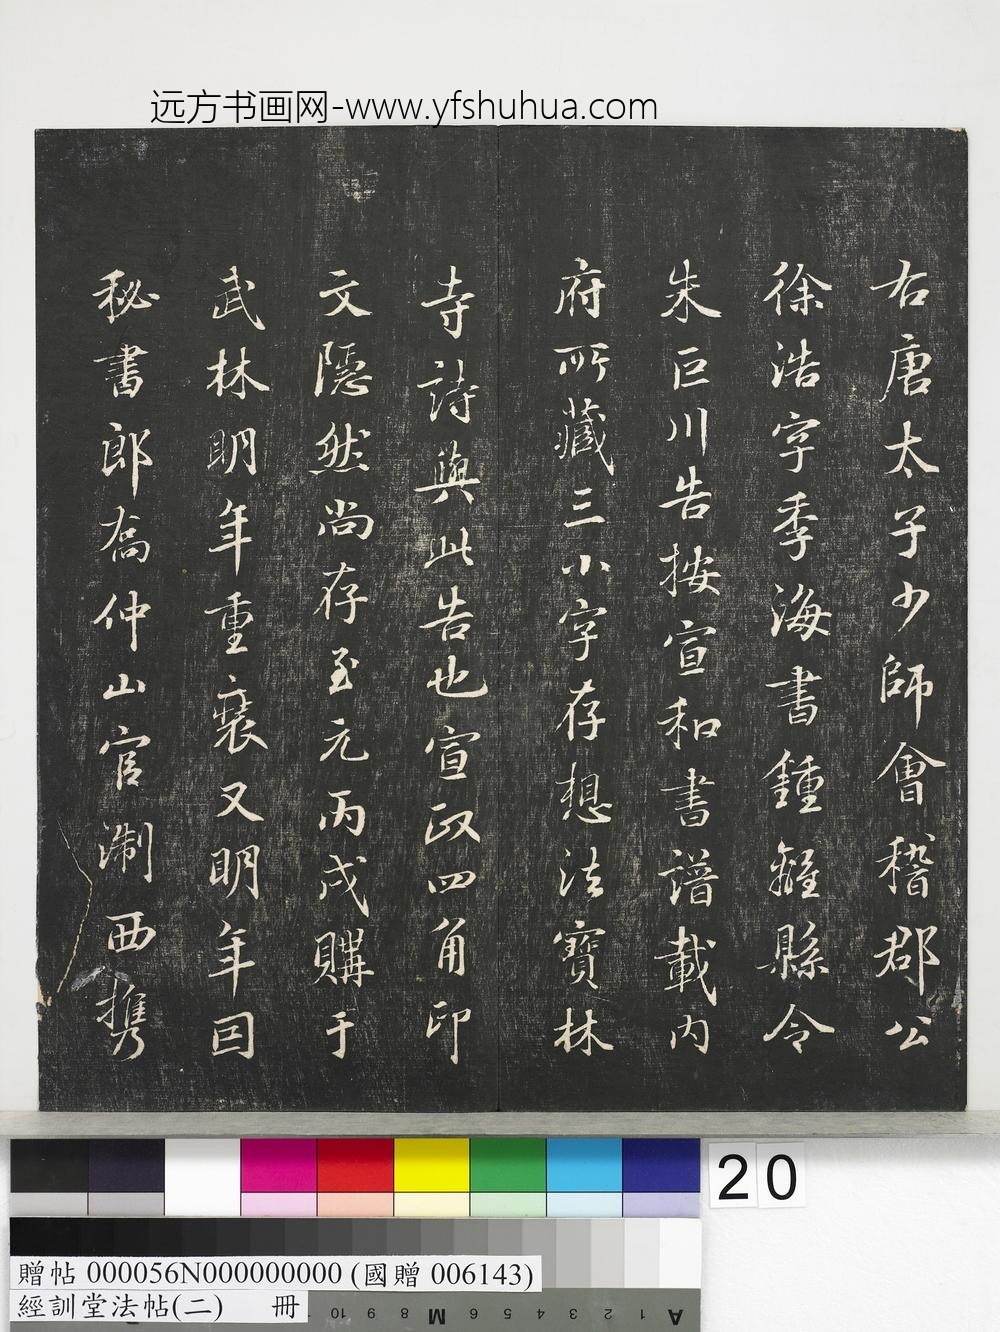 远方书画网-www.yfshuhua.com
右唐太子少師會稽郡公
徐浩字季海書鍾離縣令
朱巨川告按宣和書譜載内
府所藏三小字存想法寶林
寺詩與此告也宣政四角印
文隱然尚存至元丙戌購于
武林明年重裝又明年因
秘書郎喬仲山官淛西携
20
贈帖 000056N000000000 (國贈 006143)
經訓堂法帖(二) 冊
10 9 8 M 6 5 4 3 2 1 A